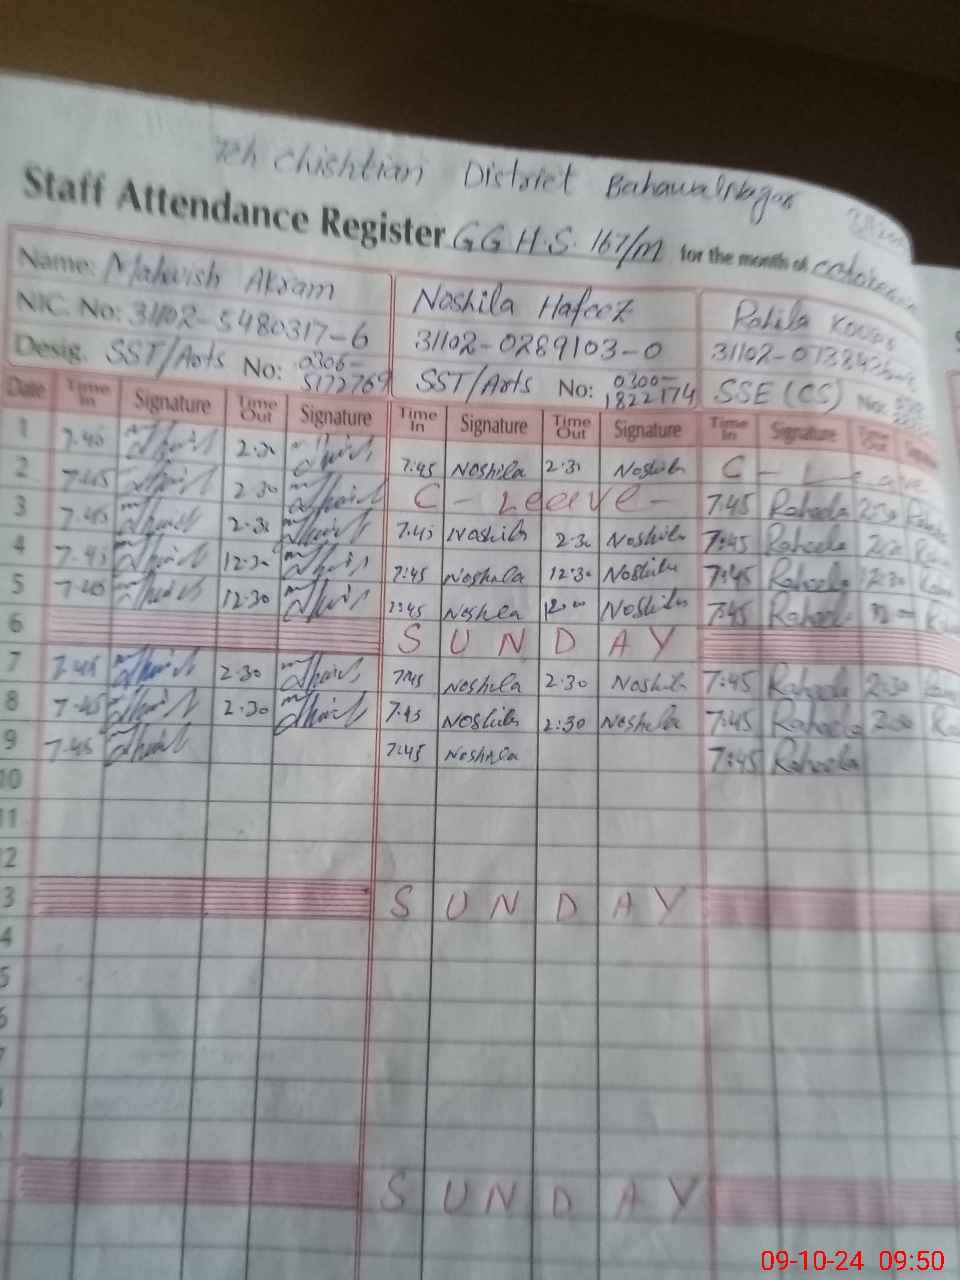 Teh Chishtian District BahawalNagar
Staff Attendance Register GGH.S. 167/M for the month of october
Name: Mahwish Akram Noshila Hafeez Rahila
NIC. No: 31102-5480317-6 31102-0289103-0 31102-
Desig. SST/Arts No: 0306-5172769 SST/Arts No: 0300-1822174 SSE (CS) No:
Date Time In Signature Time Out Signature Time In Signature Time Out Signature Time In Signature Time Out
1 7.45 2.30 7:45 Noshila 2:30 Noshila C - Leave
2 7.45 2.30 C - Leave - 7:45 Raheela 2:30
3 7.45 2.30 7:45 Noshila 2:30 Noshila 7:45 Raheela 2:30
4 7.45 12.30 7:45 Noshila 12:30 Noshila 7:45 Raheela 12:30
5 7.40 12.30 7:45 Noshila Noshila 7:45 Raheela
6 SUNDAY
7 7.45 2.30 7:45 Noshila 2:30 Noshila 7:45 Raheela 2:30
8 7.45 2.30 7:45 Noshila 2:30 Noshila 7:45 Raheela 2:30
9 7.45 7:45 Noshila 7:45 Raheela
10
11
12
3 SUNDAY
4
5
6
7
SUNDAY
09-10-24 09:50